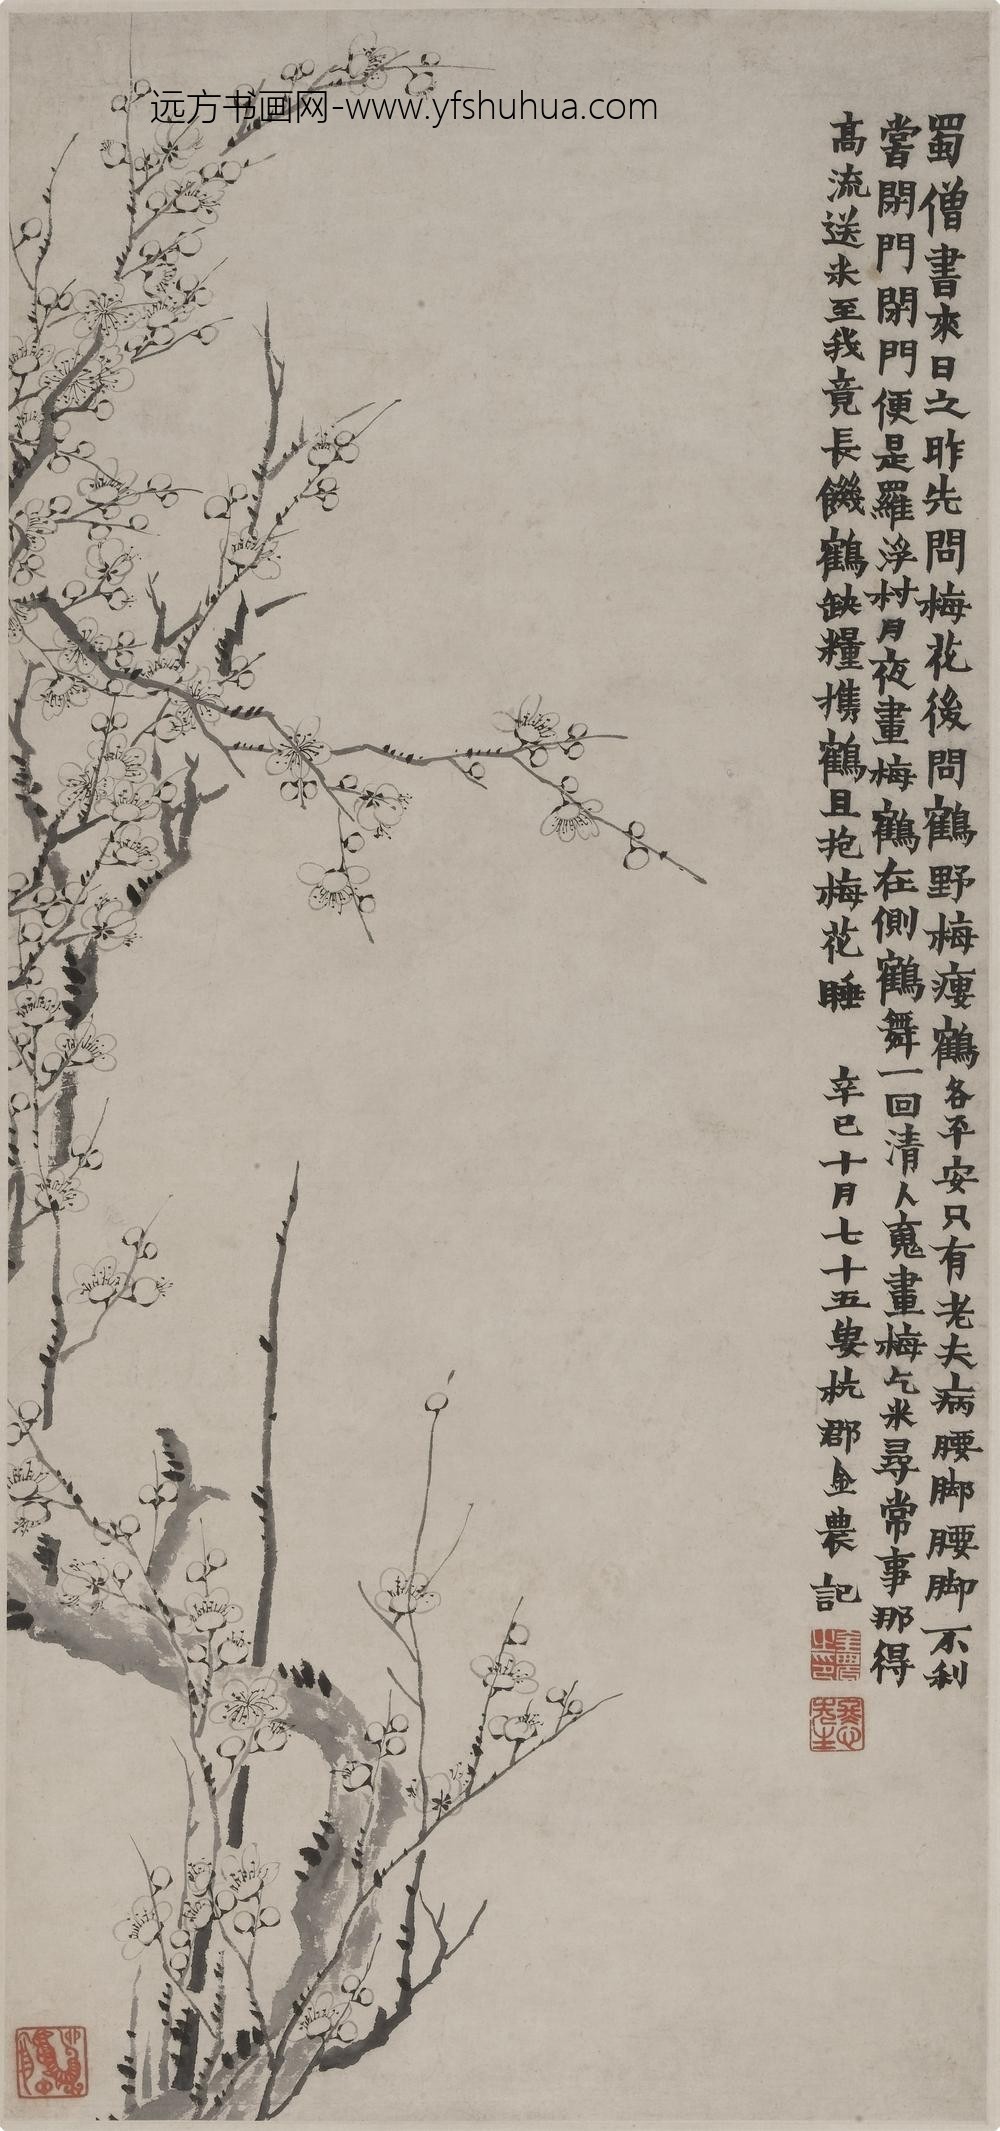 远方书画网-www.yfshuhua.com
蜀僧書來日之昨先問梅花後問鶴野梅瘦鶴各平安只有老夫病腰脚腰脚不利
嘗閉門閉門便是羅浮村月夜畫梅鶴在側鶴舞一回清人䰟畫梅乞米尋常事那得
髙流送米至我竟長饑鶴缺糧携鶴且抱梅花睡 辛巳十月七十五叟杭郡金農記
金農之印